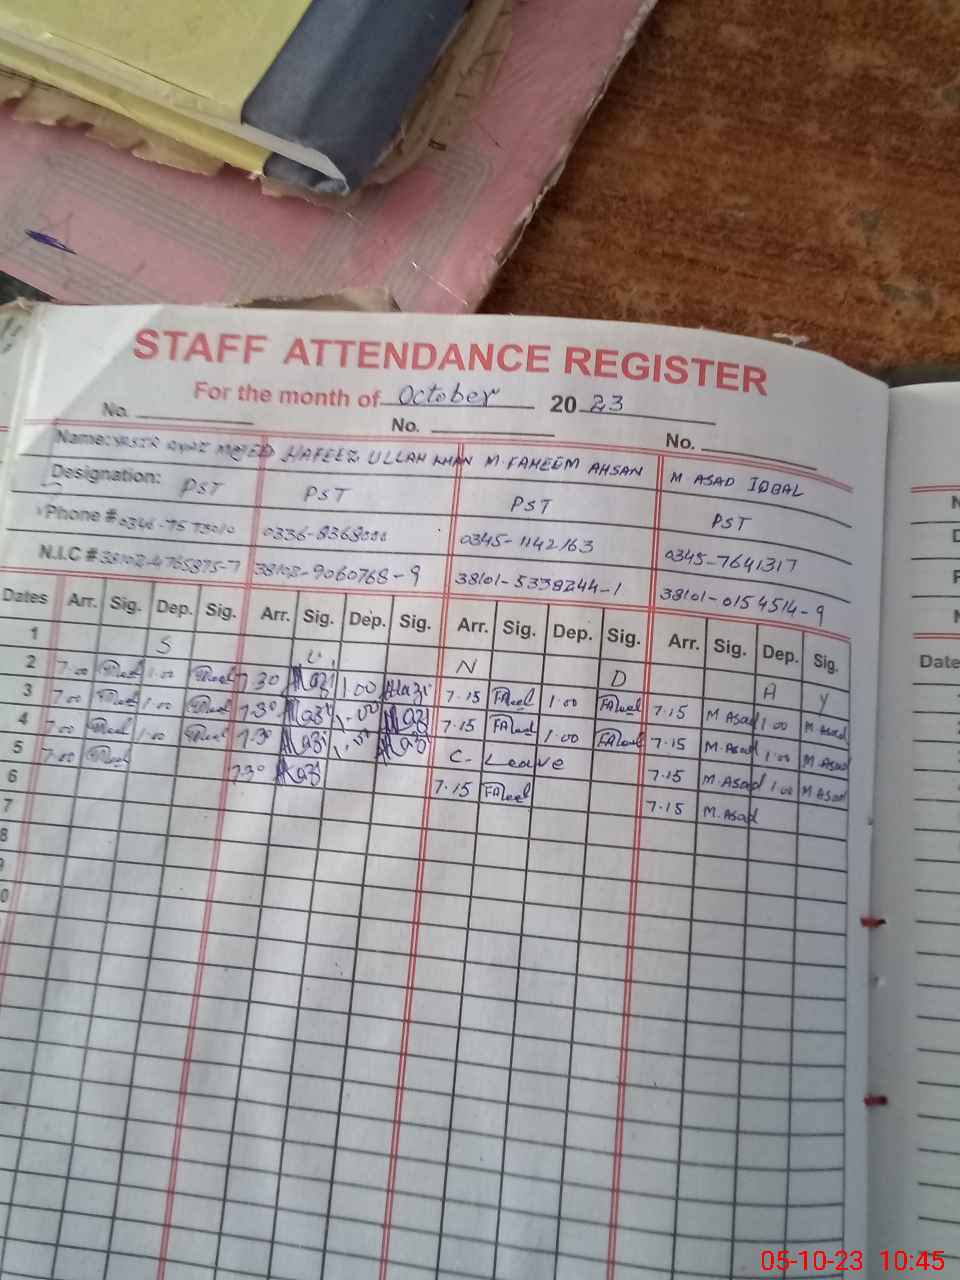 STAFF ATTENDANCE REGISTER
For the month of October 20 23
No. No. No.
Name: YASIR MAJEED HAFEEZ ULLAH KHAN M. FAHEEM AHSAN M. ASAD IQBAL
Designation: PST PST PST PST
Phone # 0336-8368000 0345-1142163 0345-7641317
N.I.C # 38103-9060768-9 38101-5338244-1 38101-0154514-9
Dates Arr. Sig. Dep. Sig. Arr. Sig. Dep. Sig. Arr. Sig. Dep. Sig. Arr. Sig. Dep. Sig.
1 S U N D A Y
2 7.00 1.00 7.30 1.00 7.15 1.00 7.15 M Asad 1.00 M Asad
3 7.00 1.00 7.30 1.00 7.15 1.00 7.15 M. Asad 1.00 M Asad
4 7.00 1.00 7.30 1.00 C. Leave 7.15 M. Asad 1.00 M Asad
5 7.00 7.30 7.15 7.15 M. Asad
6
7
8
0
Date
05-10-23 10:45